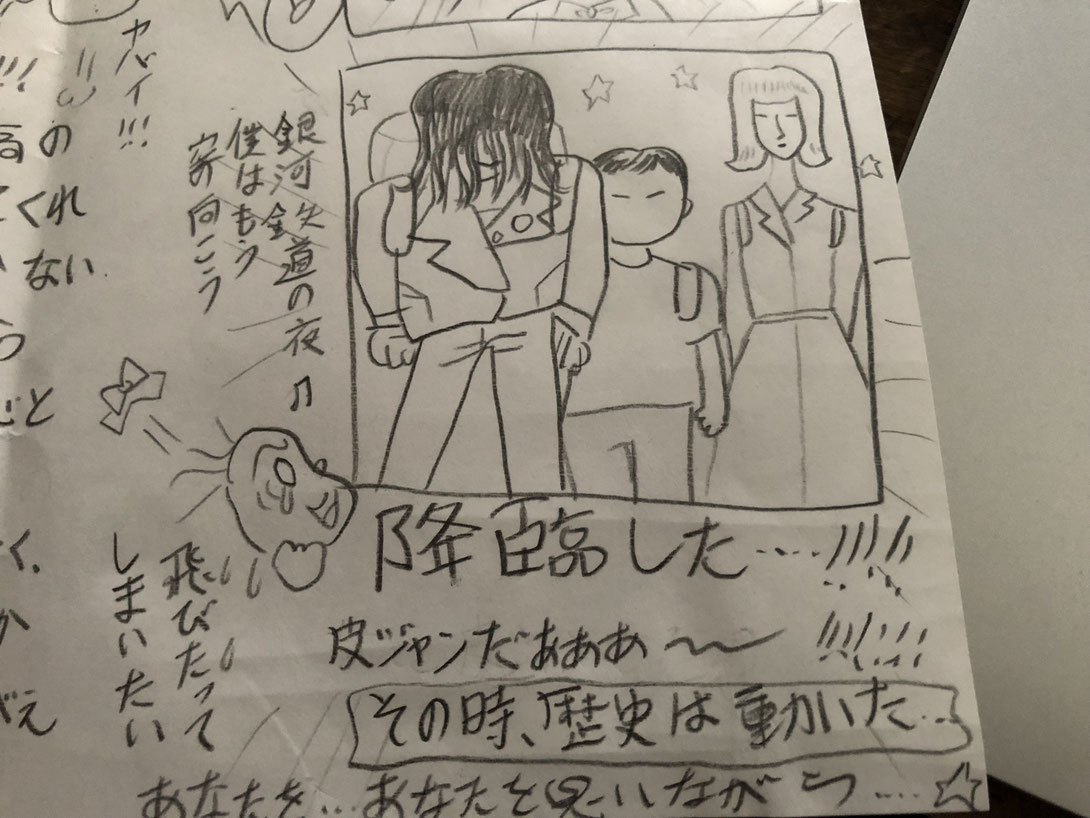 ヤバイ!!!
!!!
の
くれ
ない
と
く、
か
銀河鉄道の夜♫
僕はもう
空の向こう
飛びたって
しまいたい
降臨した….!!!!
皮ジャンだぁぁぁ〜!!!!!!
その時、歴史は動いた…
あなたを…あなたを思いながらっ….☆